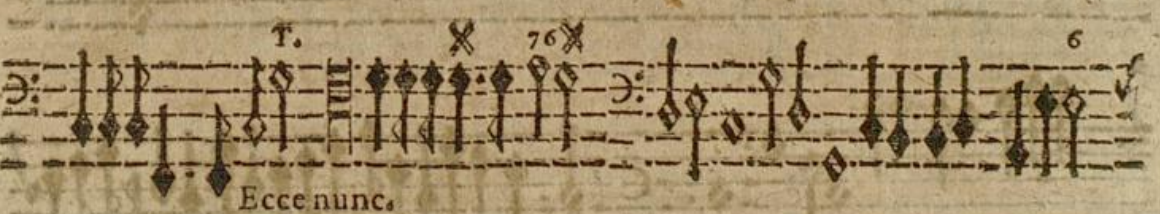 T. 76 6
Ecce nunc.